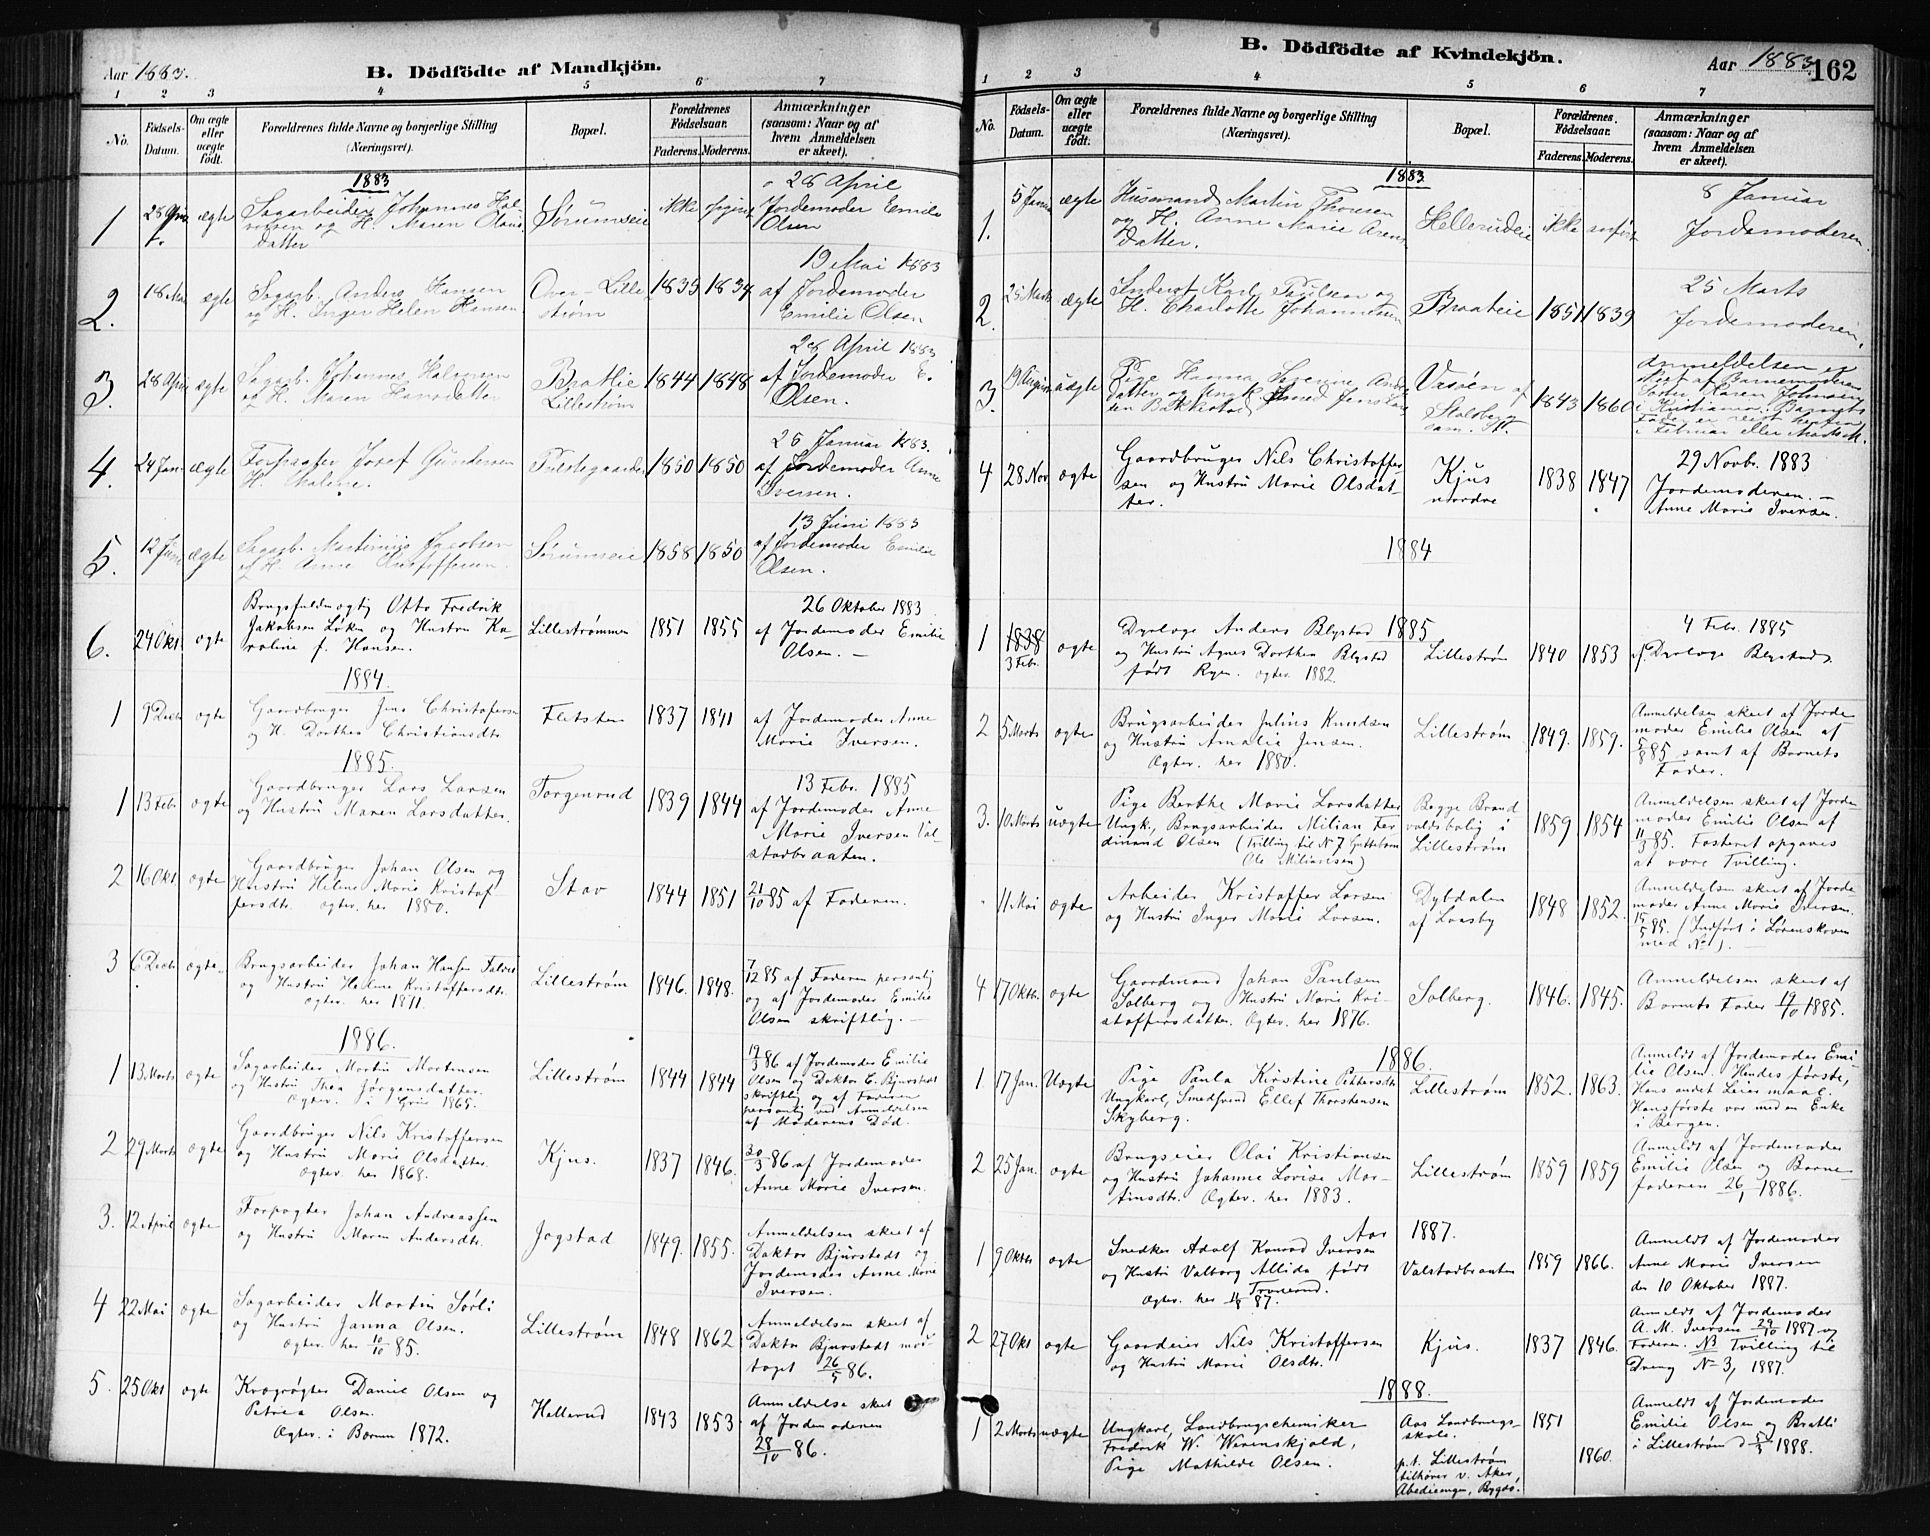 Aar 1883.
B. Dödfödte af Mandkjön.
1 2 3 4 5 6 7
No.
Födsels-
Datum.
Om ægte
eller
uægte
födt.
Forældrenes fulde Navne og borgerlige Stilling
(Næringsvei).
Bopæl.
Forældrenes
Födselsaar.
Faderens. Moderens.
Anmærkninger
(saasom: Naar og af
hvem Anmeldelsen
er skeet).
1883
1 28 April ægte Sagarbeider Johannes Hal-
vorsen og H. Maren Olaus
datter
Sørumseie ikke opgivet
28 April
Jordemoder Emilie
Olsen
2. 18 Mai ægte Sagarb. Anders Hansen
og H. Inger Helen Hansen
Over-Lille
strøm
1839 1834
19 Mai 1883
af Jordemoder
Emilie Olsen
3. 28 April ægte Sagarb. Johannes Halvorsen
og H. Maren Hansdatter
Lillestrøm
1844 1848
28 April 1883
af Jordemoder E.
Olsen.
4. 24 Jan. ægte Forpagter Josef Gundersen
H.
1850 1850
25 Januar 1883.
af Jordemoder Anne
Iversen.
5. 12 Juni ægte Sagarb. Martinius Jacobsen
og H. Anne
Sørumseie 1858 1850
13 Juni 1883
af Jordemoder Emilie
Olsen.
6. 24 Okt ægte Brugsfuldmægtig Otto Fredrik
Jakobsen Løken og Hustru Ka-
roline f. Hansen.
Lillestrømmen 1851 1855
26 Oktober 1883
af Jordemoder Emilie
Olsen. —
1884.
1 9 Decb ægte Gaardbruger Jens Christofersen
og H. Dorthea Christiansdtr
Fletsten 1837 1841
af Jordemoder Anne
Marie Iversen.
1885.
1 13 Feb. ægte Gaardbruger Lars Larsen
og Hustru Maren Larsdatter.
Torgenrud 1839 1844
13 Febr. 1885
af Jordemoder Anne
Marie Iversen Val-
stadbraaten.
2 16 Okt ægte Gaardbruger Johan Olsen og
Hustru Helene Marie Kristof-
fersdt. Ægtev. her 1880.
Stav 1844 1851
21/10 85 af Faderen.
3 6 Decb. ægte Brugsarbeider Johan Hansen
og Hustru Helene Kristoffersdtr.
Ægtev. her 1871.
Lillestrøm 1846. 1848.
7/12 85 af Faderen personlig
og af Jordemoder Emilie
Olsen skriftlig. —
1886.
1 13. Marts ægte Sagarbeider Martin Mortensen
og Hustru Thea Jørgensdatter.
Ægtev. i Grue 1865.
Lillestrøm 1844 1844
19/3 86 af Jordemoder Emilie
Olsen og Doktor E. Bjurstedt
skriftlig og af Faderen
personlig ved Anmeldelsen
af Moderens Død.
2 29 Marts ægte Gaardbruger Nils Kristoffersen
og Hustru Marie Olsdatter.
Ægtev. her 1868.
Kjus. 1837 1846.
30/3 86 af Jordemoder
Anne Marie Iversen.
3. 12 April ægte Forpagter Johan Andreassen
og Hustru Maren Andersdtr.
Jogstad 1849. 1855.
Anmeldelsen skeet af
Doktor Bjurstedt og
Jordemoder Anne Marie
Iversen.
4 22 Mai ægte Sagarbeider Martin Sørli
og Hustru Janna Olsen.
Ægtev. her 10/10 85.
Lillestrøm 1848 1862
Anmeldelsen skeet af
Doktor Bjurstedt mod
taget 26/5 86.
5. 25 Okt ægte Kreaturrøgter Daniel Olsen og
Petrea Olsen.
Ægtev. i Bærum 1872.
Hellerud 1843 1853
Anmeldelse skeet
af Jordemoderen
28/10 86.
B. Dödfödte af Kvindekjön.
Aar 1883
162
1 2 3 4 5 6 7
No.
Födsels-
Datum.
Om ægte
eller
uægte
födt.
Forældrenes fulde Navne og borgerlige Stilling
(Næringsvei).
Bopæl.
Forældrenes
Födselsaar.
Faderens. Moderens.
Anmærkninger
(saasom: Naar og af
hvem Anmeldelsen
er skeet).
1883
1. 5 Januar ægte Husmand Martin Thoresen
og H. Anne Marie Arens
datter.
Hellerudeie ikke anført
8 Januar
Jordemoderen
2. 25 Marts ægte Karl Paulsen og
H. Charlotte Johannesen
Braateie 1851 1839
25 Marts
Jordemoderen.
3. 19 uægte Pige Hanna Severine Anders
datter og Ungk.
1843 1860
Anmeldelsen er
4 28 Nov ægte Gaardbruger Nils Christoffer-
sen og Hustru Marie Olsdat-
ter.
Kjus
nordre
1838 1847
29 Novbr. 1883
Jordemoderen. —
Anne Marie Iversen.
1884
1885
1 3 Feb. ægte Dyrlæge Anders Blystad
og Hustru Agnes Dorthea Blystad
født Ryen. Ægtev. 1882.
Lillestrøm 1840 1853
4 Febr. 1885
af Dyrlæge Blystad.
2 5 Marts ægte Brugsarbeider Julius Knudsen
og Hustru Amalie Jensen.
Ægtev. her 1880.
Lillestrøm 1849. 1859.
Anmeldelsen skeet af Jorde
moder Emilie Olsen af
5/3 85 samt af Barnets
Fader.
3. 10 Marts uægte Pige Berthe Marie Larsdatter
Ungk., Brugsarbeider Milian Fer
dinand Olsen (Tvilling til N 7 Guttebarn
Ole Miliansen)
Begge Brand
valdsbolig i
Lillestrøm
1859 1854
Anmeldelsen skeet af Jorde
moder Emilie Olsen af
11/3 85. Fosteret opgaves
at være Tvilling.
11 Mai ægte Arbeider Kristoffer Larsen
og Hustru Inger Marie Larsen.
Dybdalen
af Losby
1848 1852.
Anmeldelsen skeet af Jorde
moder Anne Marie Iversen.
15/5 85. (Indført i Lørenskoven
med No 1). —
4 17 Oktb. ægte Gaardmand Johan Paulsen
Solberg og Hustru Marie Kri-
stoffersdatter. Ægtev. her 1876.
Solberg. 1846. 1845.
Anmeldelsen skeet af
Barnets Fader 19/10 1885.
1886.
1. 17 Jan. Uægte Pige Paula Kirstine Pettersdtr
Ungkarl, Smedsvend Ellef Thorstensen
Skyberg.
Lillestrøm 1852. 1863.
Anmeldt af Jordemoder Emi
lie Olsen. Hendes første,
Hans andet Leiermaal.
Hans første var med en Enke
i Bergen.
2 25 Jan. ægte Brugseier Olai Kristiansen
og Hustru Johanne Lovise Mar-
tinsdt. Ægtev. her 1883.
Lillestrøm 1859 1859
Anmeldt af Jordemoder
Emilie Olsen og Barne-
faderen 26/1 1886.
Aar 1887.
1 9 Oktbr ægte Snedker Adolf Konrad Iversen
og Hustru Valborg Allida født
Tronerud.
Ægtev. her 87.
Valstadbraaten 1859 1866.
Anmeldt af Jordemoder
Anne Marie Iversen
den 10 Oktober 1887.
2 27 Okt ægte Gaardeier Nils Kristoffersen
og Hustru Marie Olsdtr.
Kjus. 1837 1846.
Anmeldt af Jordemoder
A. M. Iversen 29/10 1887 og
Faderen. NB Tvilling til
Dreng No 3, 1887.
1888.
1 2 Marts uægte Ungkarl, Landbrugschemiker
Fredrik W. Werenskjold,
Pige Mathilde Olsen.
Aas Landbrugs-
skole.
p.t. Lillestrøm
tilhører v. Aker,
Abediengen, Bygdø.
1851
1860.
Anmeldt af Jordemoder
Emilie Olsen og Bratli
i Lillestrøm d 5/3 1888.